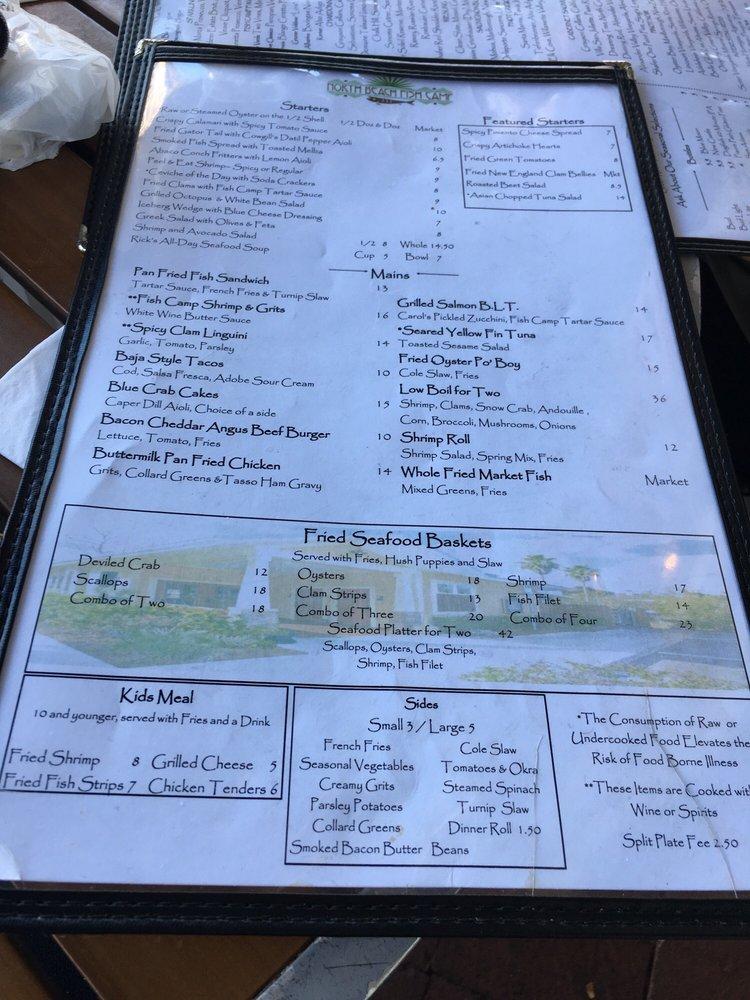 NORTH BEACH FISH CAMP
Starters
Raw or Steamed Oyster on the 1/2 Shell 1/2 Doz & Doz Market
Crispy Calamari with Spicy Tomato Sauce 8
Fried Gator Tail with Cowgill's Datil Pepper Aioli 10
Smoked Fish Spread with Toasted Melba 6.5
Abaco Conch Fritters with Lemon Aioli 9
Peel & Eat Shrimp~ Spicy or Regular 9
*Ceviche of the Day with Soda Crackers
Fried Clams with Fish Camp Tartar Sauce
Grilled Octopus & White Bean Salad
Iceberg Wedge with Blue Cheese Dressing
Greek Salad with Olives & Feta
Shrimp and Avocado Salad 1/2 8 Whole 14.50
Rick's All-Day Seafood Soup Cup 5 Bowl 7
Featured Starters
Spicy Pimento Cheese Spread 7
Crispy Artichoke Hearts 7
Fried Green Tomatoes 8
Fried New England Clam Bellies Mkt
Roasted Beet Salad 8.5
*Asian Chopped Tuna Salad 14
Mains
Pan Fried Fish Sandwich 13
Tartar Sauce, French Fries & Turnip Slaw
**Fish Camp Shrimp & Grits 16
White Wine Butter Sauce
**Spicy Clam Linguini 14
Garlic, Tomato, Parsley
Baja Style Tacos 10
Cod, Salsa Fresca, Adobe Sour Cream
Blue Crab Cakes 15
Caper Dill Aioli, Choice of a side
Bacon Cheddar Angus Beef Burger 10
Lettuce, Tomato, Fries
Buttermilk Pan Fried Chicken 14
Grits, Collard Greens & Tasso Ham Gravy
Grilled Salmon B.L.T. 14
Carol's Pickled Zucchini, Fish Camp Tartar Sauce
*Seared Yellow Fin Tuna 17
Toasted Sesame Salad
Fried Oyster Po' Boy 15
Cole Slaw, Fries
Low Boil for Two 36
Shrimp, Clams, Snow Crab, Andouille,
Corn, Broccoli, Mushrooms, Onions
Shrimp Roll 12
Shrimp Salad, Spring Mix, Fries
Whole Fried Market Fish Market
Mixed Greens, Fries
Fried Seafood Baskets
Served with Fries, Hush Puppies and Slaw
Deviled Crab 12 Oysters 18 Shrimp 17
Scallops 18 Clam Strips 13 Fish Filet 14
Combo of Two 18 Combo of Three 20 Combo of Four 23
Seafood Platter for Two 42
Scallops, Oysters, Clam Strips,
Shrimp, Fish Filet
Kids Meal
10 and younger, served with Fries and a Drink
Fried Shrimp 8 Grilled Cheese 5
Fried Fish Strips 7 Chicken Tenders 6
Sides
Small 3 / Large 5
French Fries Cole Slaw
Seasonal Vegetables Tomatoes & Okra
Creamy Grits Steamed Spinach
Parsley Potatoes Turnip Slaw
Collard Greens Dinner Roll 1.50
Smoked Bacon Butter Beans
*The Consumption of Raw or
Undercooked Food Elevates the
Risk of Food Borne Illness
**These Items are Cooked with
Wine or Spirits
Split Plate Fee 2.50
Ask About Our Seasonal Selections